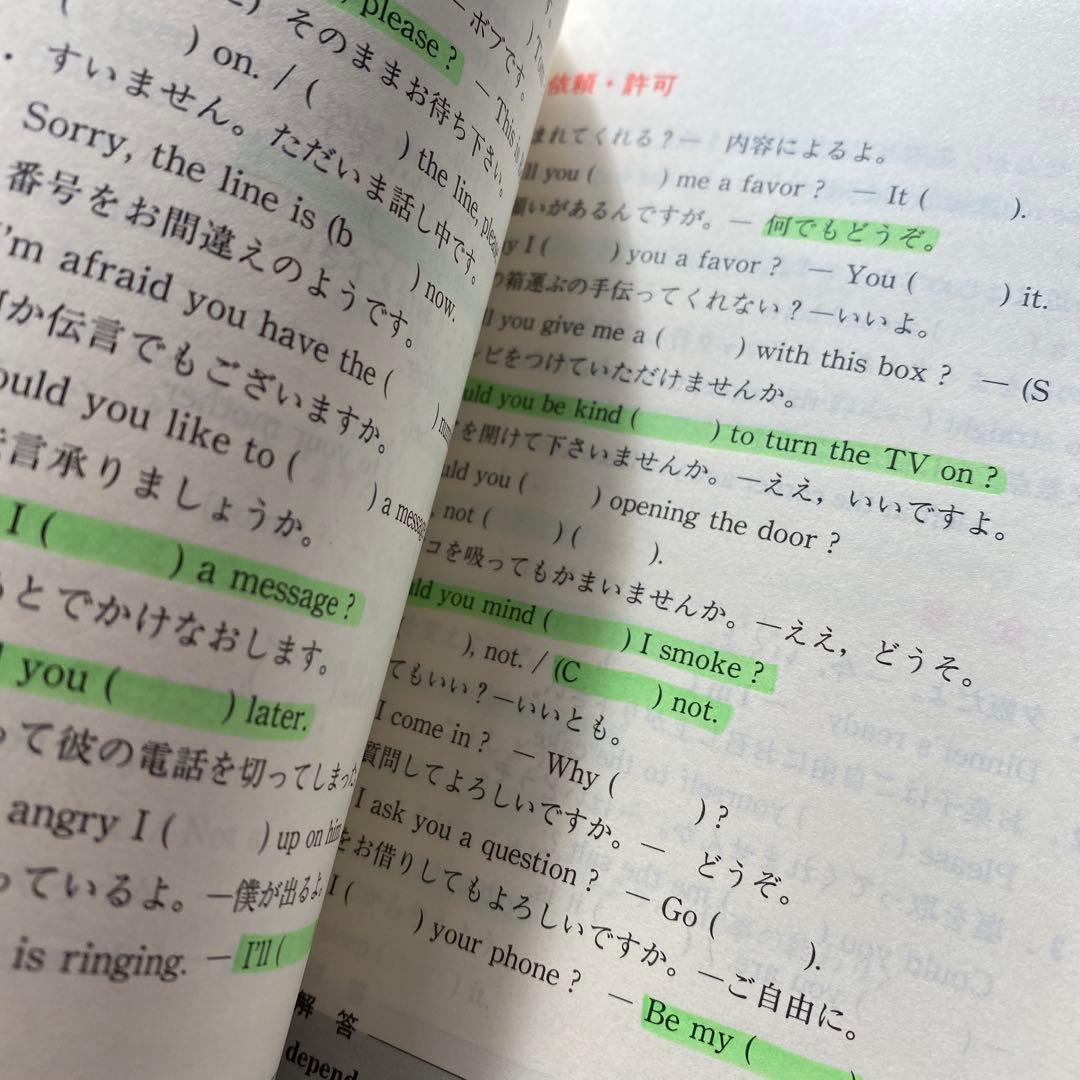 please ?
そのままお待ち下さい。
) on. / ( ) the line, please
すいません。ただいま話し中です。
Sorry, the line is (b ) now.
番号をお間違えのようです。
I'm afraid you have the (
か伝言でもございますか。
ould you like to ( ) a message
言承りましょうか。
I ( ) a message ?
とでかけなおします。
you ( ) later.
って彼の電話を切ってしまった
angry I ( ) up on him
っているよ。―僕が出るよ。
is ringing. ― I'll (
― ボブです。
― This is
依頼・許可
まれてくれる？― 内容によるよ。
ll you ( ) me a favor ? ― It ( ).
願いがあるんですが。― 何でもどうぞ。
y I ( ) you a favor ? ― You ( ) it.
の箱運ぶの手伝ってくれない？―いいよ。
ll you give me a ( ) with this box ? ― (S
レビをつけていただけませんか。
uld you be kind ( ) to turn the TV on ?
を開けて下さいませんか。―ええ，いいですよ。
uld you ( ) opening the door ?
, not ( ) ( ).
コを吸ってもかまいませんか。―ええ，どうぞ。
ld you mind ( ) I smoke ?
( ), not. / (C ) not.
てもいい？―いいとも。
I come in ? ― Why ( ) ?
質問してよろしいですか。― どうぞ。
I ask you a question ? ― Go ( ).
をお借りしてもよろしいですか。―ご自由に。
I ( ) your phone ? ― Be my (
解答
depend